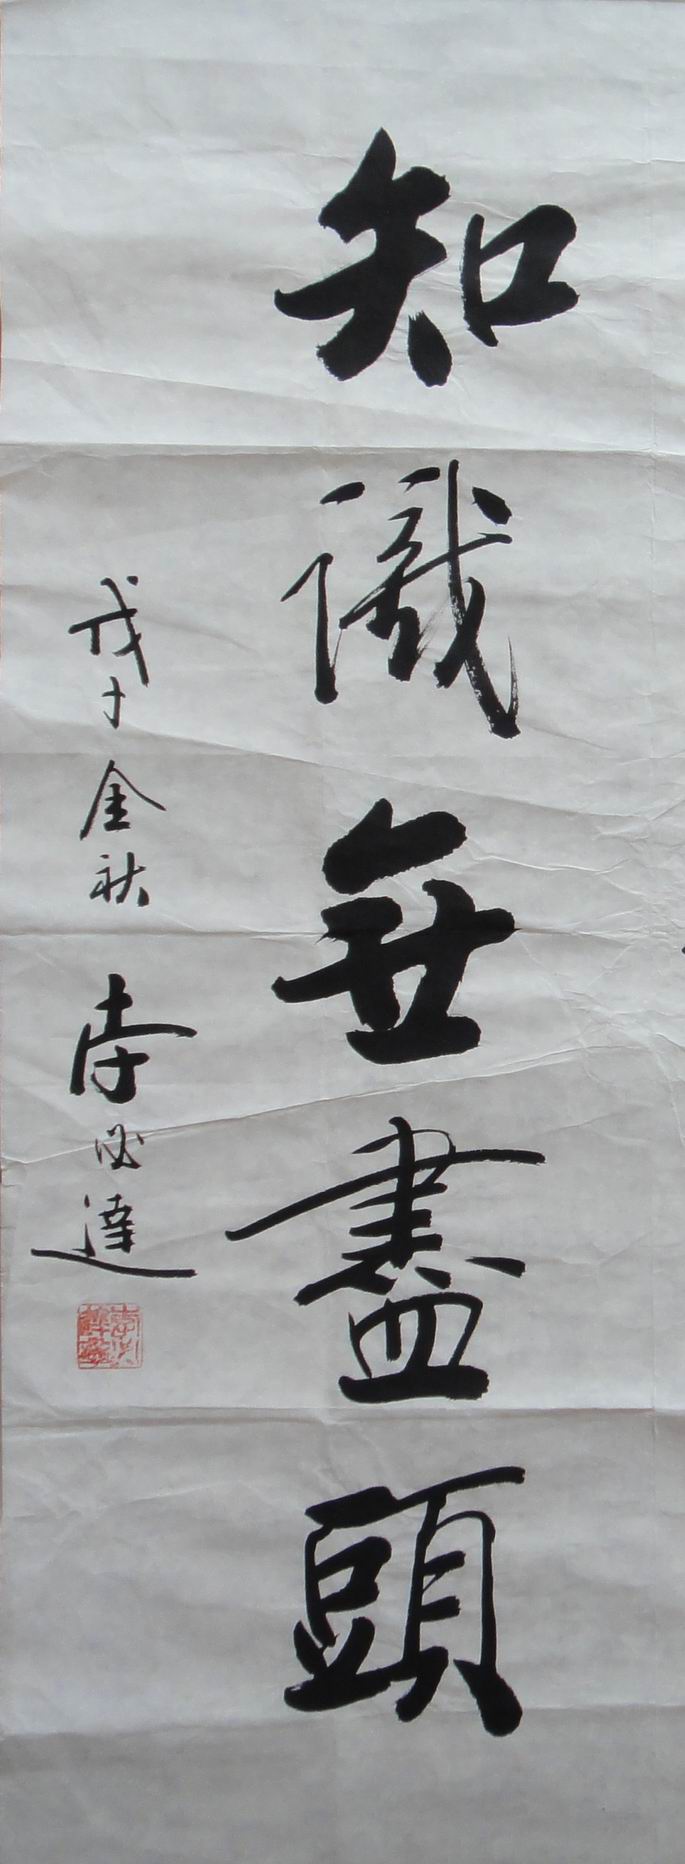 知識無盡頭
戊子金秋 李必達